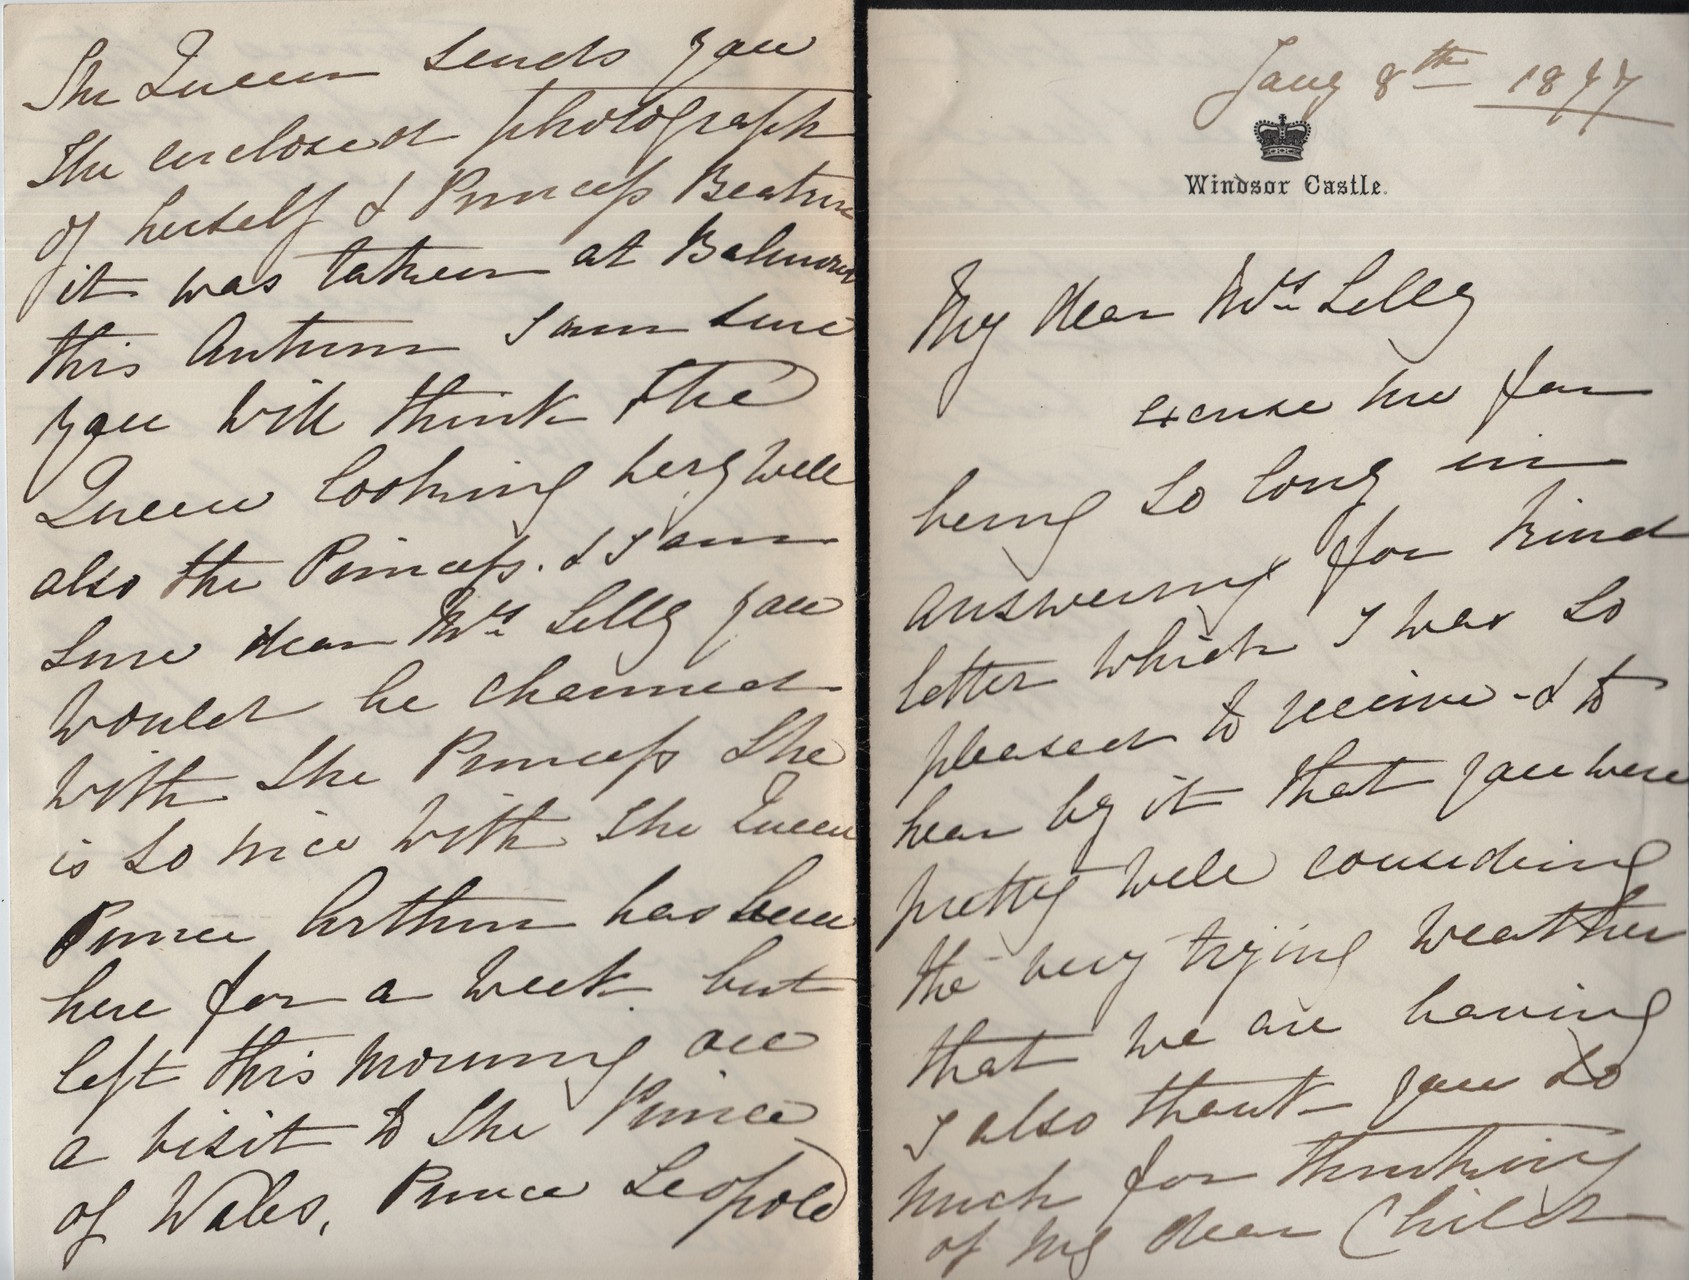 Jany 8th 1877
Windsor Castle.
My dear Mrs Lilly
excuse me for
being so long in
answering your kind
letter which I was so
pleased to receive - & to
hear by it that you were
pretty well considering
the very trying weather
that we are having
I also thank you so
much for thinking
of my dear Child
The Queen sends you
the enclosed photograph
of herself & Princess Beatrice
it was taken at Balmoral
this Autumn I am sure
you will think the
Queen looking very well
also the Princess. & I am
sure dear Mrs Lilly you
would be charmed
with the Princess She
is so nice with the Queen
Prince Arthur has been
here for a week but
left this morning on
a visit to the Prince
of Wales, Prince Leopold